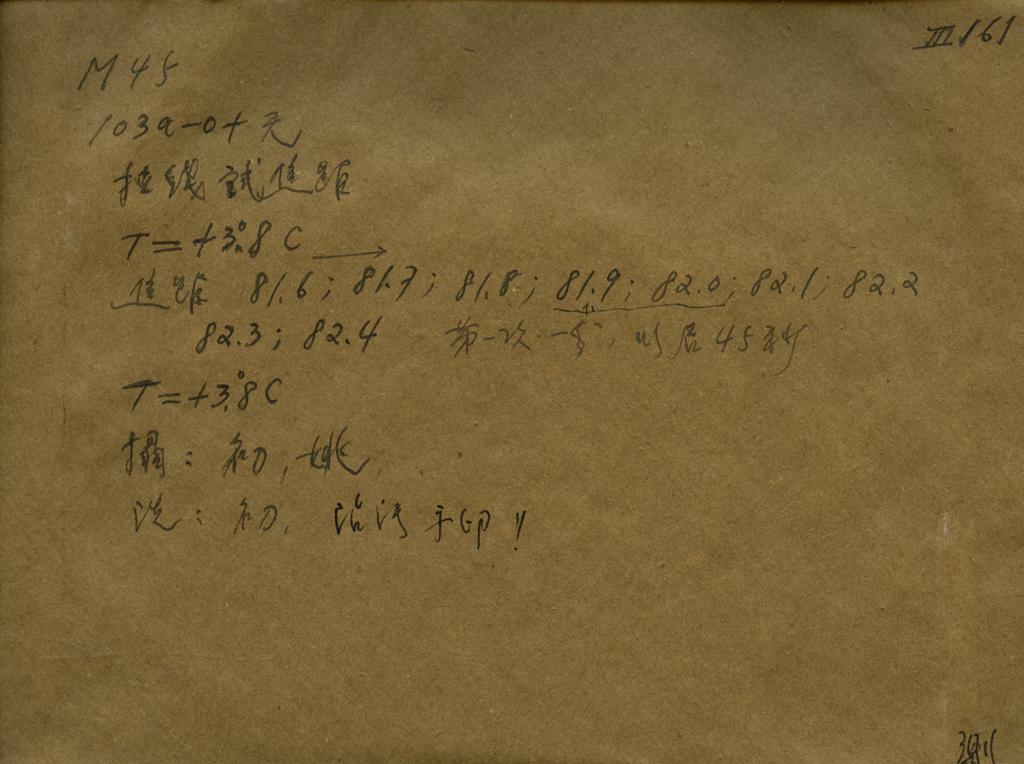 III 161
M 45
103a-0+无
拉线試焦距
T=+3°.8 C →
焦距 81.6; 81.7; 81.8; 81.9; 82.0; 82.1; 82.2
82.3; 82.4 第一次一分, 以后45秒
T=+3°.8 C
攝: 初, 姚
洗: 初, 沿污手印!!
测